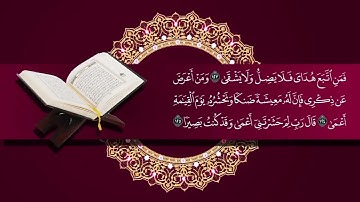 فَمَنِ ٱتَّبَعَ هُدَاىَ فَلَا يَضِلُّ وَلَا يَشْقَىٰ ۝١٢٣ وَمَنْ أَعْرَضَ
عَن ذِكْرِى فَإِنَّ لَهُۥ مَعِيشَةً ضَنكًا وَنَحْشُرُهُۥ يَوْمَ ٱلْقِيَٰمَةِ
أَعْمَىٰ ۝١٢٤ قَالَ رَبِّ لِمَ حَشَرْتَنِىٓ أَعْمَىٰ وَقَدْ كُنتُ بَصِيرًا ۝١٢٥